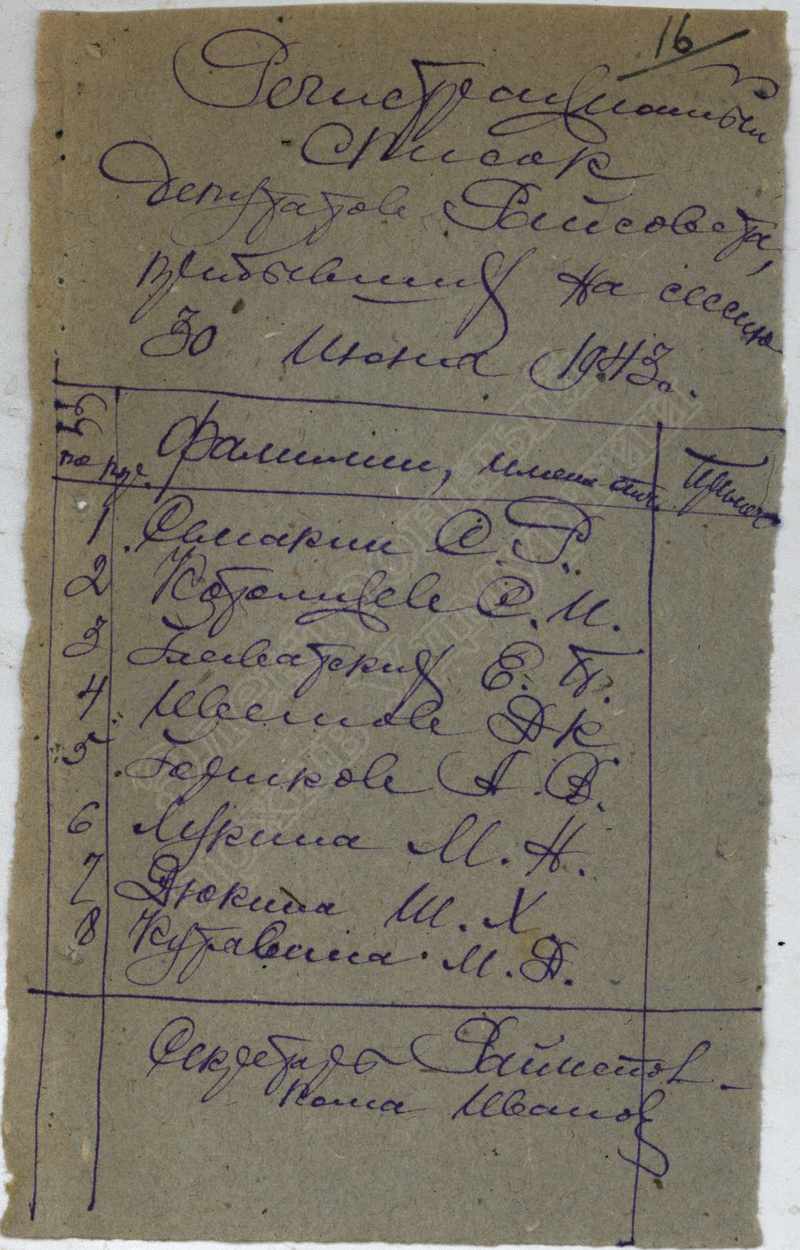 16
Регистрационный
список
депутатов Райсовета,
прибывших на сессию
30 июня 1943 г.
№№ по пор. Фамилии, имена, отч. Примеч
1 Семакин С. Р.
2 С. И.
3 Глеватских Е. П.
4 Ившов Д К
5 А. В.
6 Лукина М. Н.
7 Дюкина Ш. Х.
8 Кутявина М. Д.
Секретарь Райиспол-
кома Иванов